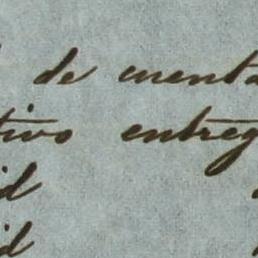 de cuenta
tivo entreg
id
id